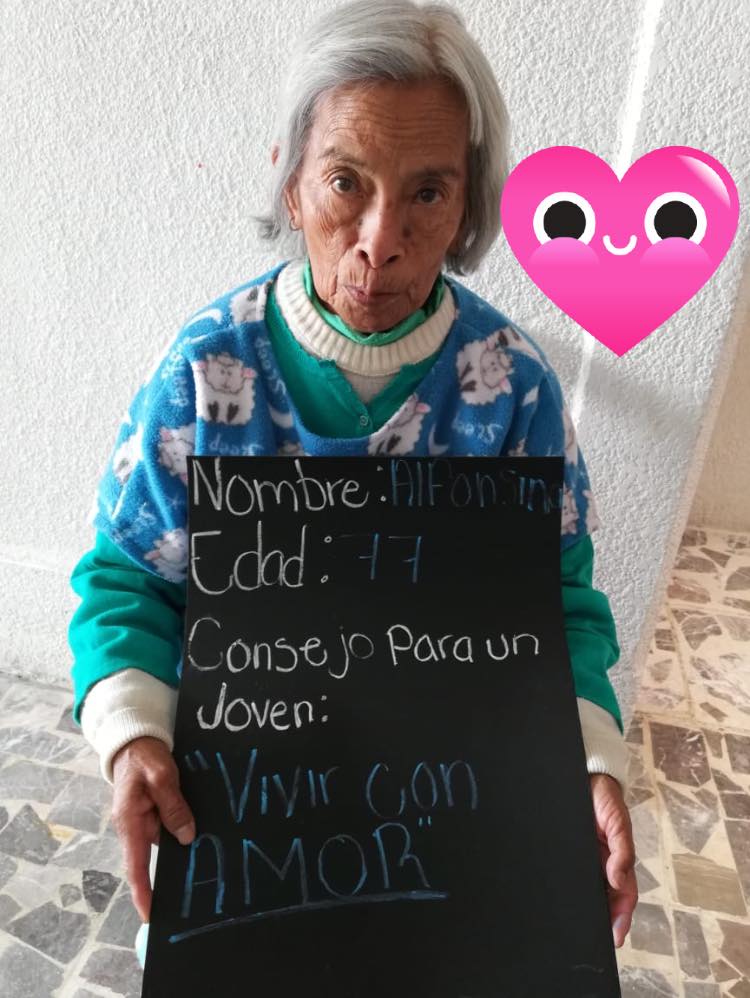 Nombre: Alfonsina
Edad: 77
Consejo Para un
Joven:
"Vivir con
AMOR"
Sleep